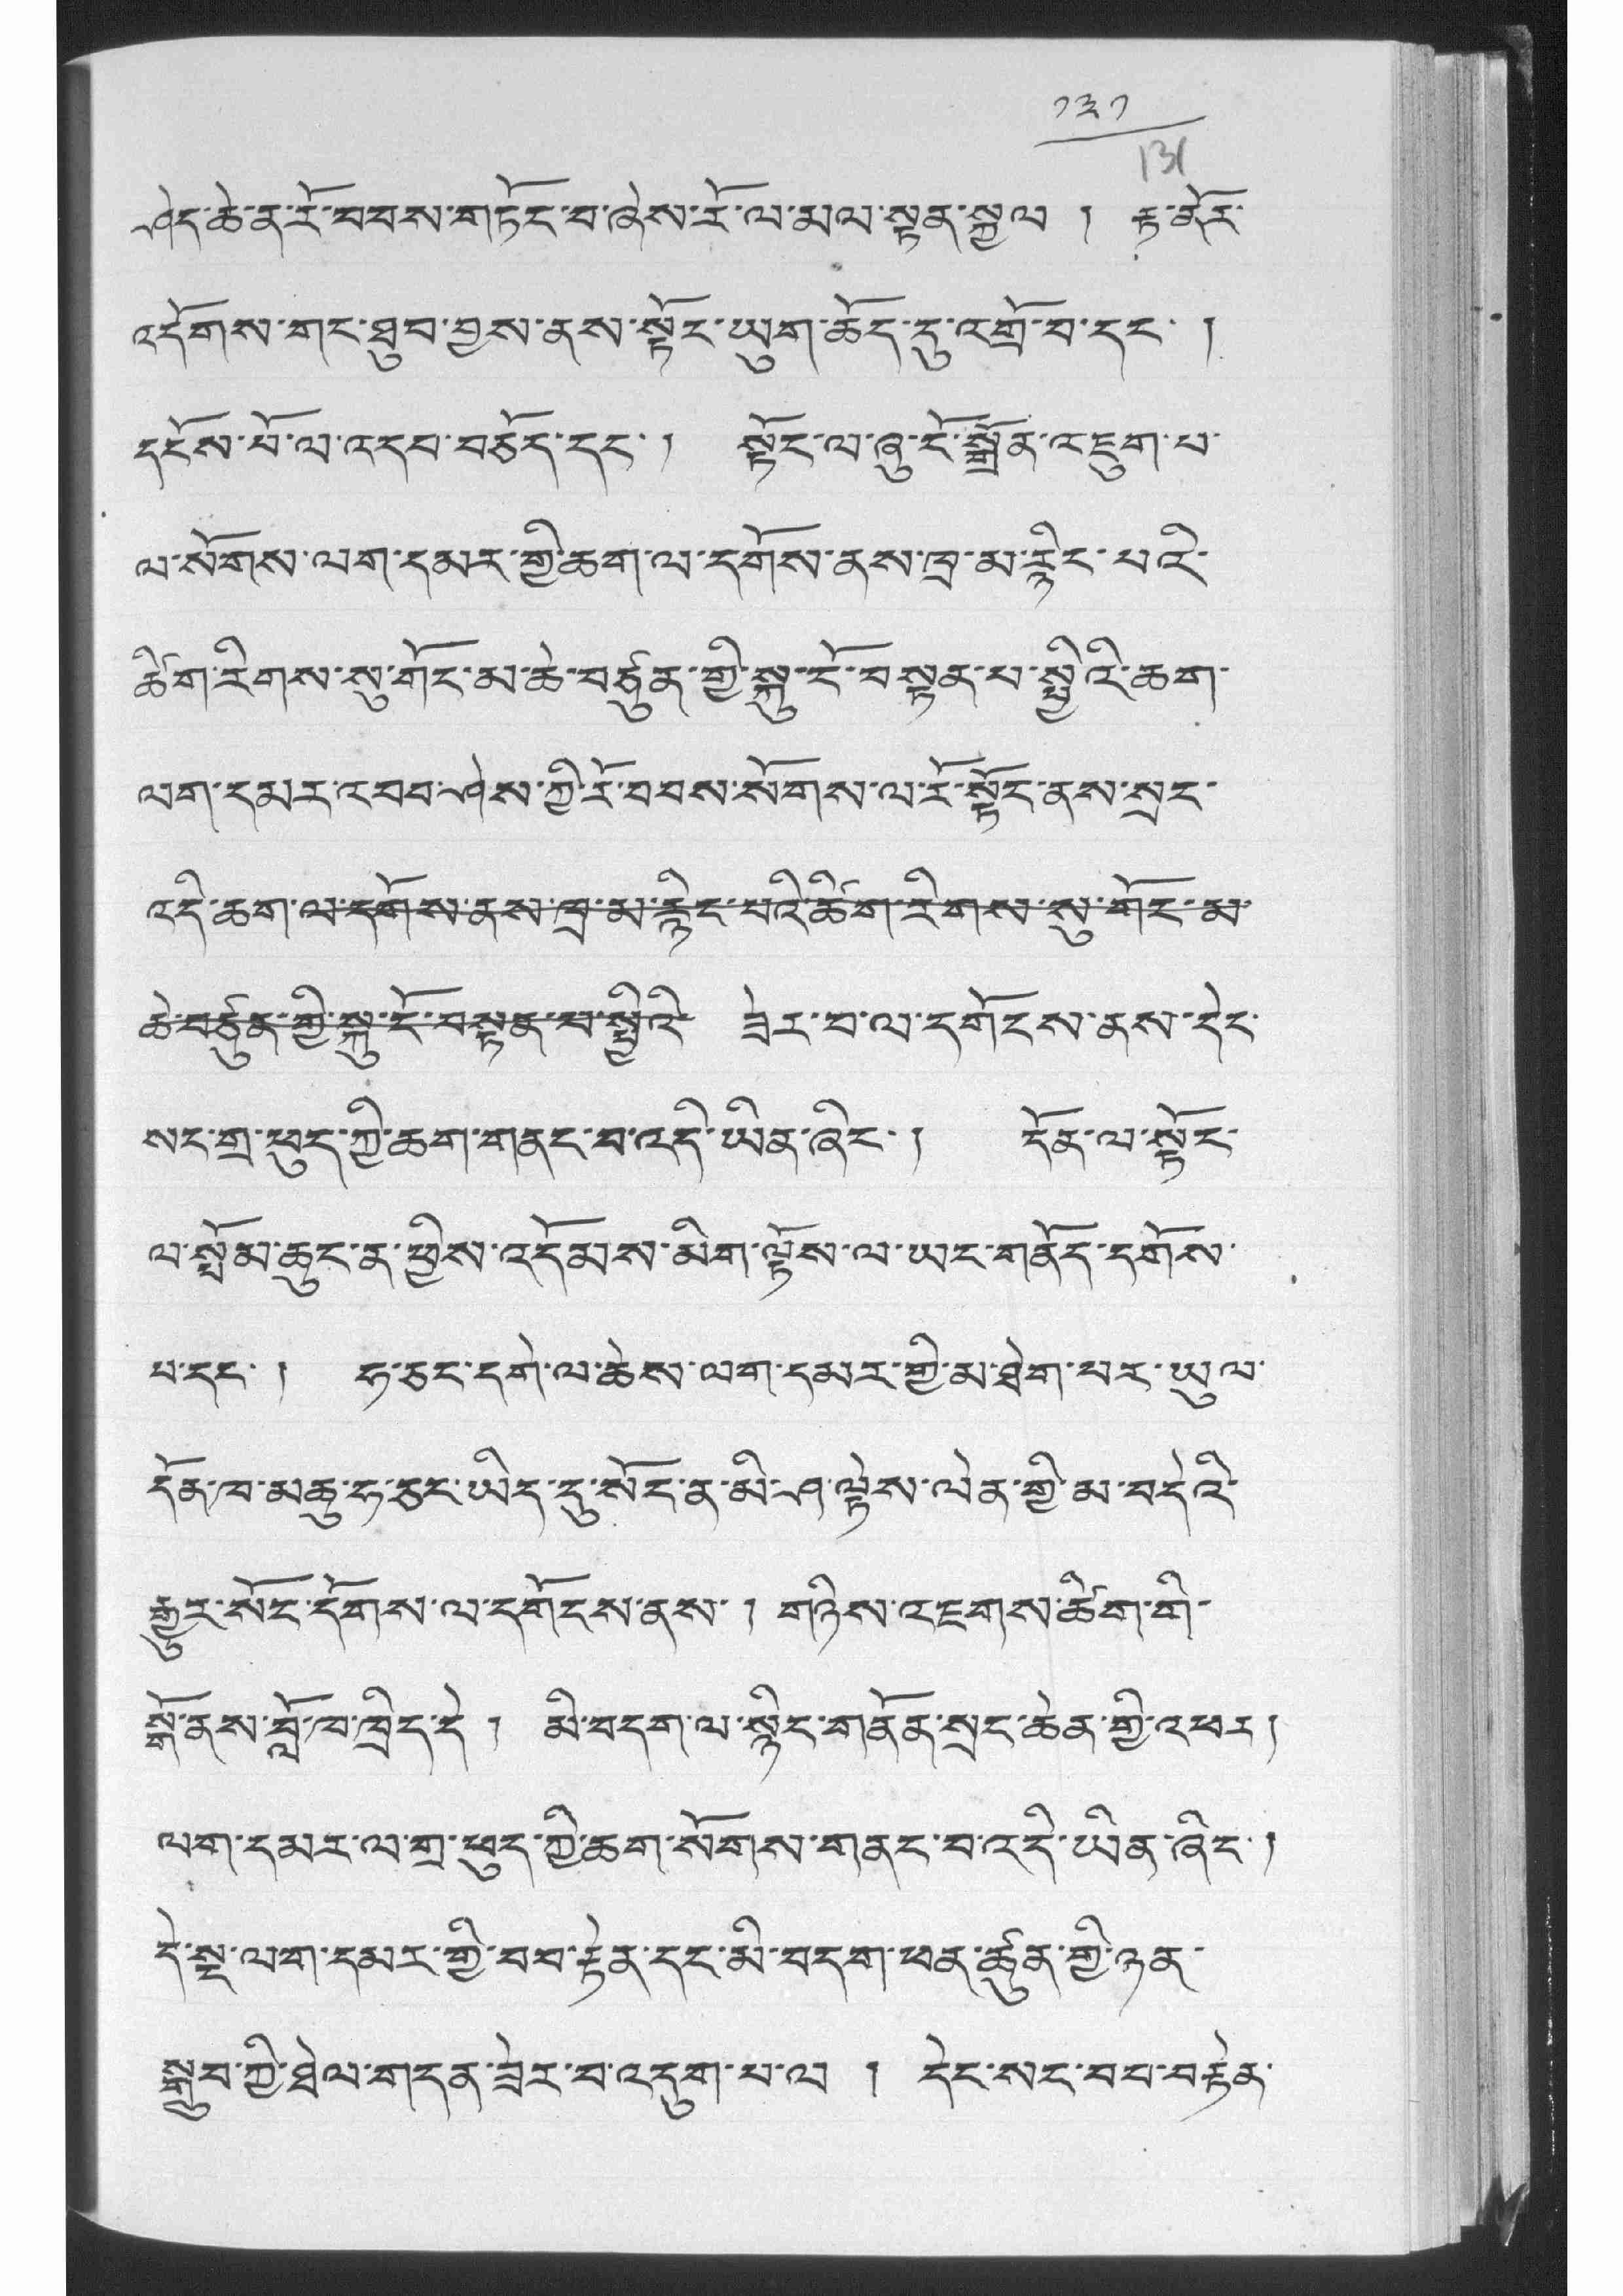 ༡༣༡
131
ཤེད་ཆེ་ན་རོ་བབས་གཏོང་བ་ཞེས་རོ་ལ་མལ་སྟན་སྐྱལ ། རྟ་ནོར་
འདོགས་གང་ཐུབ་བྱས་ནས་སྟོང་ཡུག་ཆོད་དུ་འགྲོ་བ་དང་ །
དངོས་པོ་ལ་འདབ་བཅོད་དང་ ། སྟོང་ལ་ཞུ་ངོ་སྒྲོན་འཇུག་པ་
ལ་སོགས་ལག་དམར་གྱི་ཆག་ལ་དགོས་ནས་ཁྲ་མ་རྙིང་པའི་
ཚིག་རིགས་སུ་གོང་མ་ཆེ་བཙུན་གྱི་སྐུ་ངོ་བསྟན་པ་སྤྱིའི་ཆག་
ལག་དམར་འབབ་ཤེས་ཀྱི་རོ་བབས་སོགས་ལ་རོ་སྟོང་ནས་སྲང་
འདི་ཆག་ལ་དགོས་ནས་ཁྲ་མ་རྙིང་པའི་ཚིག་རིགས་སུ་གོང་མ་
ཆེ་བཙུན་གྱི་སྐུ་ངོ་བསྟན་པ་སྤྱིའི ཟེར་བ་ལ་དགོངས་ནས་དེང་
སང་གྲ་ཕུད་ཀྱི་ཆག་གནང་བ་འདི་ཡིན་ཞིང་ ། དོན་ལ་སྟོང་
ལ་སྤོམ་ཆུང་ན་ཕྱིས་འདོམས་མིག་ལྟོས་ལ་ཡང་གནོད་དགོས་
པ་དང་ ། ཧ་ཅང་དགེ་ལ་ཆེས་ལག་དམར་གྱི་མ་ཐེག་པར་ཡུལ་
དོན་ཁ་མཆུ་ཧ་ཅང་ཡིད་དུ་སོད་ན་མི་ཤ་ལྟེས་ལེན་གྱི་མ་བདེའི་
རྒྱུར་སོང་དོགས་ལ་དགོངས་ནས་ ། གཉིས་འཇགས་ཚིག་གི་
སྒོ་ནས་བློ་ཁ་ཁྲིད་དེ ། མི་བདག་ལ་སྙིང་གནོན་སྲང་ཆེན་གྱི་འཕར །
ལག་དམར་ལ་གྲ་ཕུད་ཀྱི་ཆག་སོགས་གནང་བ་འདི་ཡིན་ཞིང་ །
དེ་སྔ་ལག་དམར་གྱི་བབ་རྟེན་དང་མི་བདག་ཕན་ཚུན་གྱི་ཉན་
སྒྲུབ་ཀྱི་ཐེལ་གདན་ཟེར་བ་འདུག་པ་ལ ། དེང་སང་བབ་བརྟེན་